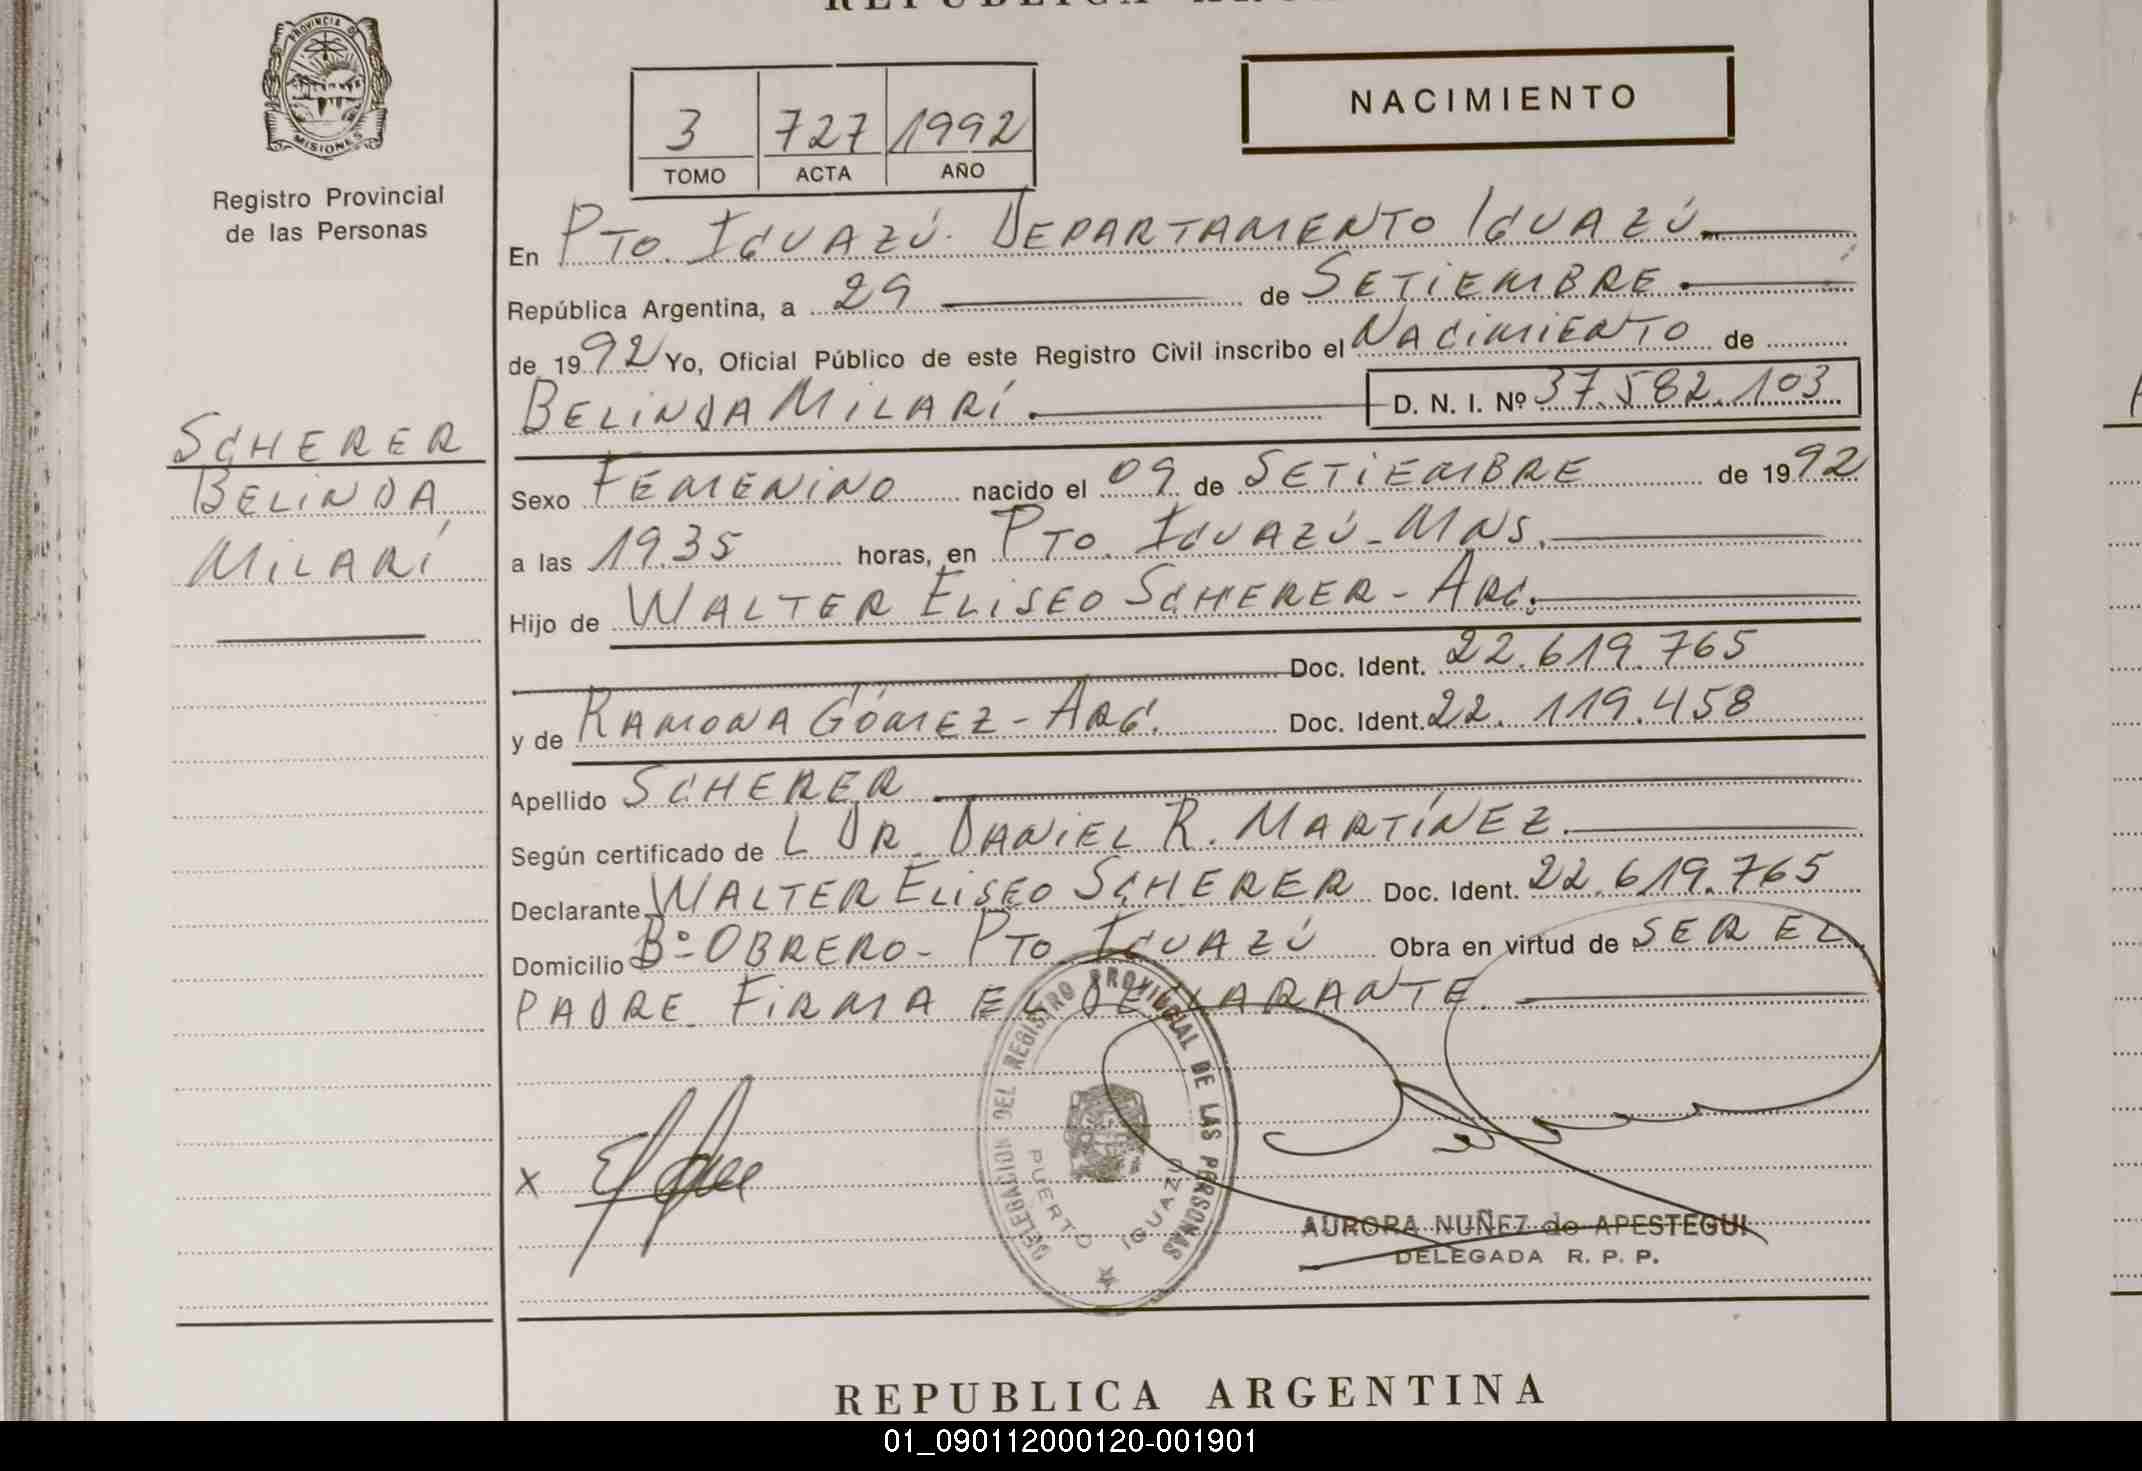 PROVINCIA DE
MISIONES
Registro Provincial
de las Personas
SCHERER
BELINDA
MILARÍ
3 727 1992
TOMO ACTA AÑO
NACIMIENTO
En PTO. IGUAZÚ. DEPARTAMENTO IGUAZÚ.
República Argentina, a 29 de SETIEMBRE.
de 1992 Yo, Oficial Público de este Registro Civil inscribo el NACIMIENTO de
BELINDA MILARÍ. D. N. I. Nº 37.582.103
Sexo FEMENINO nacido el 09 de SETIEMBRE de 1992
a las 19.35 horas, en PTO. IGUAZÚ - MNS.
Hijo de WALTER ELISEO SCHERER - ARG.
Doc. Ident. 22.619.765
y de RAMONA GÓMEZ - ARG. Doc. Ident. 22.119.458
Apellido SCHERER
Según certificado de L DR. DANIEL R. MARTÍNEZ.
Declarante WALTER ELISEO SCHERER Doc. Ident. 22.619.765
Domicilio Bº OBRERO - PTO IGUAZÚ Obra en virtud de SER EL
PADRE FIRMA EL DECLARANTE.
DELEGACION DEL REGISTRO PROVINCIAL DE LAS PERSONAS
PUERTO IGUAZU
X
AURORA NUÑEZ de APESTEGUI
DELEGADA R. P. P.
REPUBLICA ARGENTINA
01_090112000120-001901